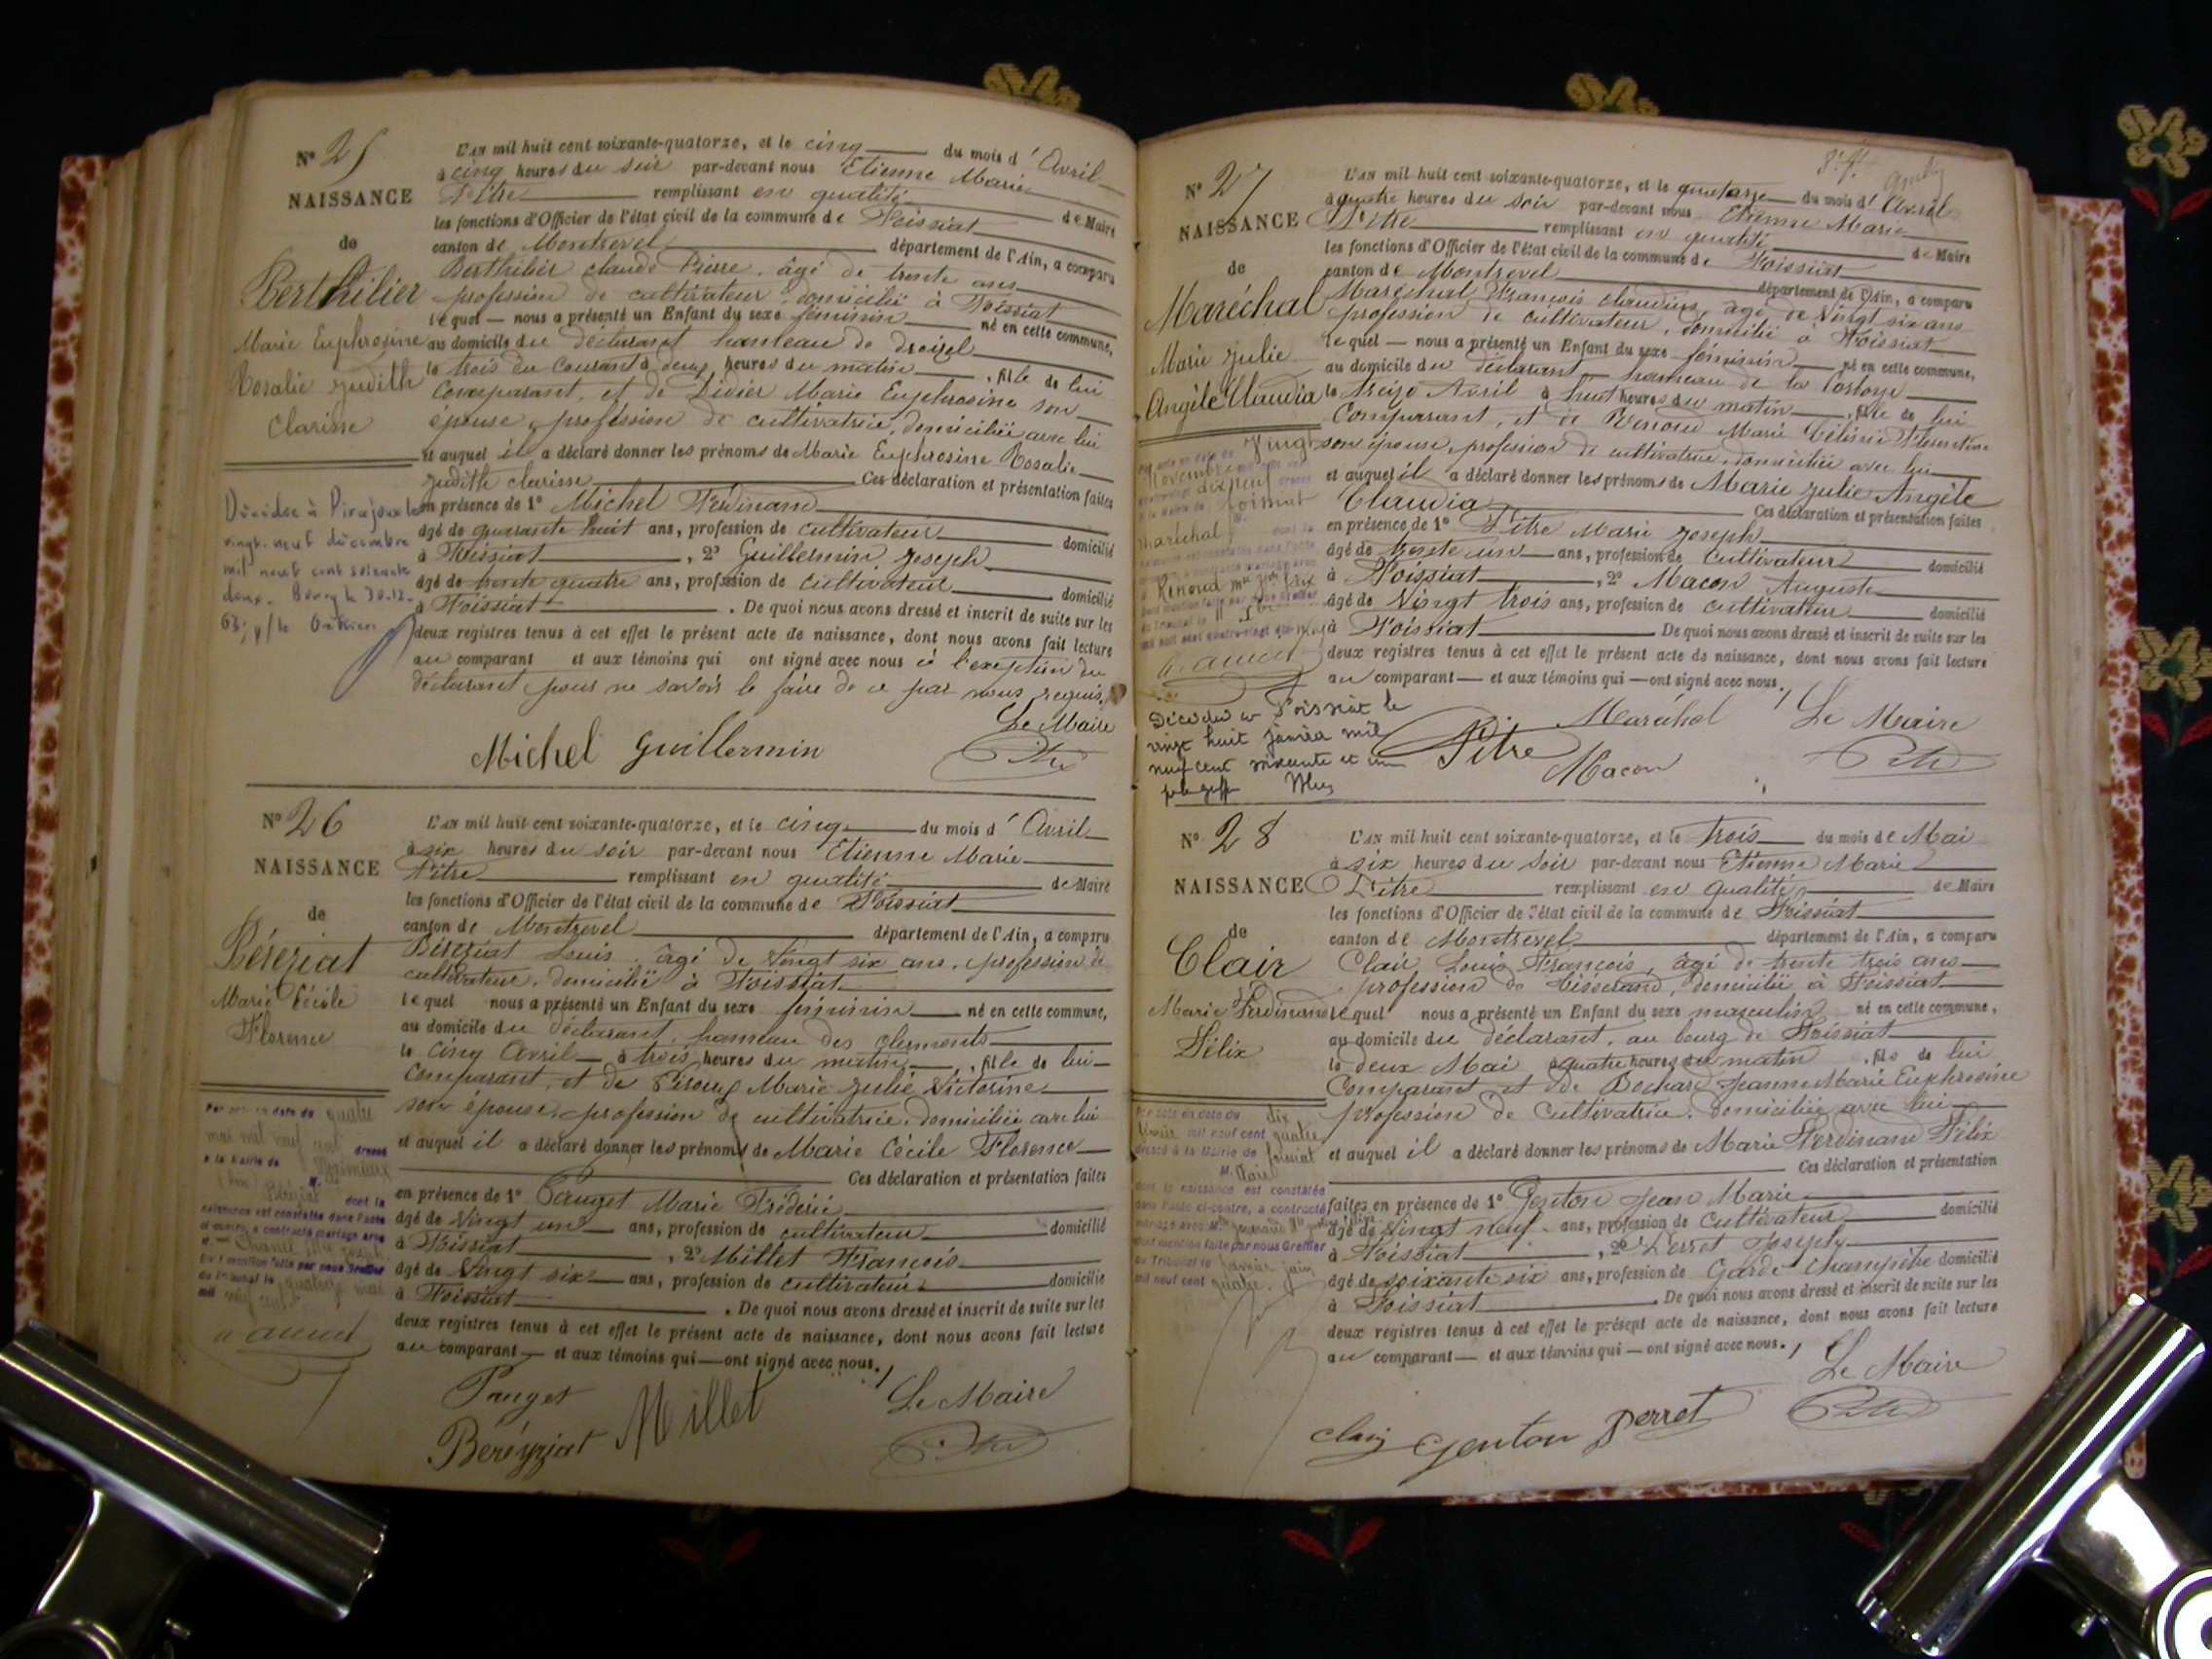 N° 25
NAISSANCE
de
Berthilier
Marie Euphrosine
Rosalie Judith
Clarisse
L'AN mil huit cent soixante-quatorze, et le cinq du mois d'Avril
à cinq heures du soir par-devant nous Etienne Marie
Pitre remplissant en qualité de Maire
les fonctions d'Officier de l'état civil de la commune de Foissiat
canton de Montrevel département de l'Ain, a comparu
Berthilier claude Pierre, âgé de trente ans
profession de cultivateur, domicilié à Foissiat
lequel nous a présenté un Enfant du sexe féminin né en cette commune,
au domicile du déclarant hameau de
le trois du courant à deux heures du matin, fille de lui
comparant, et de Livier Marie Euphrosine son
épouse, profession de cultivatrice, domiciliée avec lui
et auquel il a déclaré donner les prénoms de Marie Euphrosine Rosalie
Judith clarisse Ces déclaration et présentation faites
en présence de 1° Michel Ferdinand
âgé de quarante huit ans, profession de cultivateur domicilié
à Foissiat, 2° Guillermin Joseph
âgé de trente quatre ans, profession de cultivateur domicilié
à Foissiat. De quoi nous avons dressé et inscrit de suite sur les
deux registres tenus à cet effet le présent acte de naissance, dont nous avons fait lecture
au comparant et aux témoins qui ont signé avec nous à l'exception du
déclarant pour ne savoir le faire de ce par nous requis.
Le Maire
Michel Guillermin Pitre
Décédée à Pirajoux le
vingt-neuf décembre
mil neuf cent soixante
deux. Bourg le 30-12-
N° 26
NAISSANCE
de
Béréziat
Marie Cécile
Florence
L'AN mil huit cent soixante-quatorze, et le cinq du mois d'Avril
à six heures du soir par-devant nous Etienne Marie
Pitre remplissant en qualité de Maire
les fonctions d'Officier de l'état civil de la commune de Foissiat
canton de Montrevel département de l'Ain, a comparu
Béréziat Louis, âgé de vingt six ans, profession de
cultivateur, domicilié à Foissiat
lequel nous a présenté un Enfant du sexe féminin né en cette commune,
au domicile du déclarant, hameau des clements
le cinq Avril à trois heures du matin, fille de lui
comparant, et de Marie Julie Victorine
son épouse, profession de cultivatrice, domiciliée avec lui
et auquel il a déclaré donner les prénoms de Marie Cécile Florence
Ces déclaration et présentation faites
en présence de 1° Pauget Marie Frédéric
âgé de vingt un ans, profession de cultivateur domicilié
à Foissiat, 2° Millet François
âgé de vingt six ans, profession de cultivateur domicilié
à Foissiat. De quoi nous avons dressé et inscrit de suite sur les
deux registres tenus à cet effet le présent acte de naissance, dont nous avons fait lecture
au comparant et aux témoins qui ont signé avec nous.
Pauget Millet Le Maire
Beréyziat Pitre
Par acte en date du quatre
mai mil neuf cent dressé
à la Mairie de
Béréziat dont la
naissance est constatée dans l'acte
ci-contre, a contracté mariage avec
Dont mention faite par nous Greffier
du Tribunal le quatorze mai
mil neuf cent
N° 27
NAISSANCE
de
Maréchal
Marie Julie
Angèle Claudia
L'AN mil huit cent soixante-quatorze, et le quatorze du mois d'Avril
à quatre heures du soir par-devant nous Etienne Marie
Pitre remplissant en qualité de Maire
les fonctions d'Officier de l'état civil de la commune de Foissiat
canton de Montrevel département de l'Ain, a comparu
Maréchal François claudius, âgé de vingt six ans
profession de cultivateur, domicilié à Foissiat
lequel nous a présenté un Enfant du sexe féminin né en cette commune,
au domicile du déclarant hameau de la
le treize Avril à huit heures du matin, fille de lui
Comparant, et de Marie Florentine
son épouse, profession de cultivatrice, domiciliée avec lui
et auquel il a déclaré donner les prénoms de Marie Julie Angèle
Claudia Ces déclaration et présentation faites
en présence de 1° Pitre Marie Joseph
âgé de trente un ans, profession de cultivateur domicilié
à Foissiat, 2° Macon Auguste
âgé de vingt trois ans, profession de cultivateur domicilié
à Foissiat. De quoi nous avons dressé et inscrit de suite sur les
deux registres tenus à cet effet le présent acte de naissance, dont nous avons fait lecture
au comparant et aux témoins qui ont signé avec nous.
Maréchal Le Maire
Pitre Macon Pitre
Vingt
Novembre
dix neuf
Foissiat
Maréchal
Renoud
Décédée à Foissiat le
vingt huit janvier mil
neuf cent soixante et un
N° 28
NAISSANCE
de
Clair
Marie Ferdinand
Félix
L'AN mil huit cent soixante-quatorze, et le trois du mois de Mai
à six heures du soir par-devant nous Etienne Marie
Pitre remplissant en qualité de Maire
les fonctions d'Officier de l'état civil de la commune de Foissiat
canton de Montrevel département de l'Ain, a comparu
Clair Louis François, âgé de trente trois ans
profession de tisserand, domicilié à Foissiat
lequel nous a présenté un Enfant du sexe masculin né en cette commune,
au domicile du déclarant, au bourg de Foissiat
le deux Mai à quatre heures du matin, fils de lui
Comparant et de Bochard Jeanne Marie Euphrosine
profession de cultivatrice, domiciliée avec lui
et auquel il a déclaré donner les prénoms de Marie Ferdinand Félix
Ces déclaration et présentation
faites en présence de 1° Genton Jean Marie
âgé de vingt neuf ans, profession de cultivateur domicilié
à Foissiat, 2° Perret Joseph
âgé de soixante six ans, profession de Garde champêtre domicilié
à Foissiat. De quoi nous avons dressé et inscrit de suite sur les
deux registres tenus à cet effet le présent acte de naissance, dont nous avons fait lecture
au comparant et aux témoins qui ont signé avec nous.
Le Maire
Clair Genton Perret Pitre
Par acte en date du dix
mil neuf cent quatre
dressé à la Mairie de Foissiat
M. Clair
dont la naissance est constatée
dans l'acte ci-contre, a contracté
mariage avec
Dont mention faite par nous Greffier
du Tribunal le juin
mil neuf cent quatre.